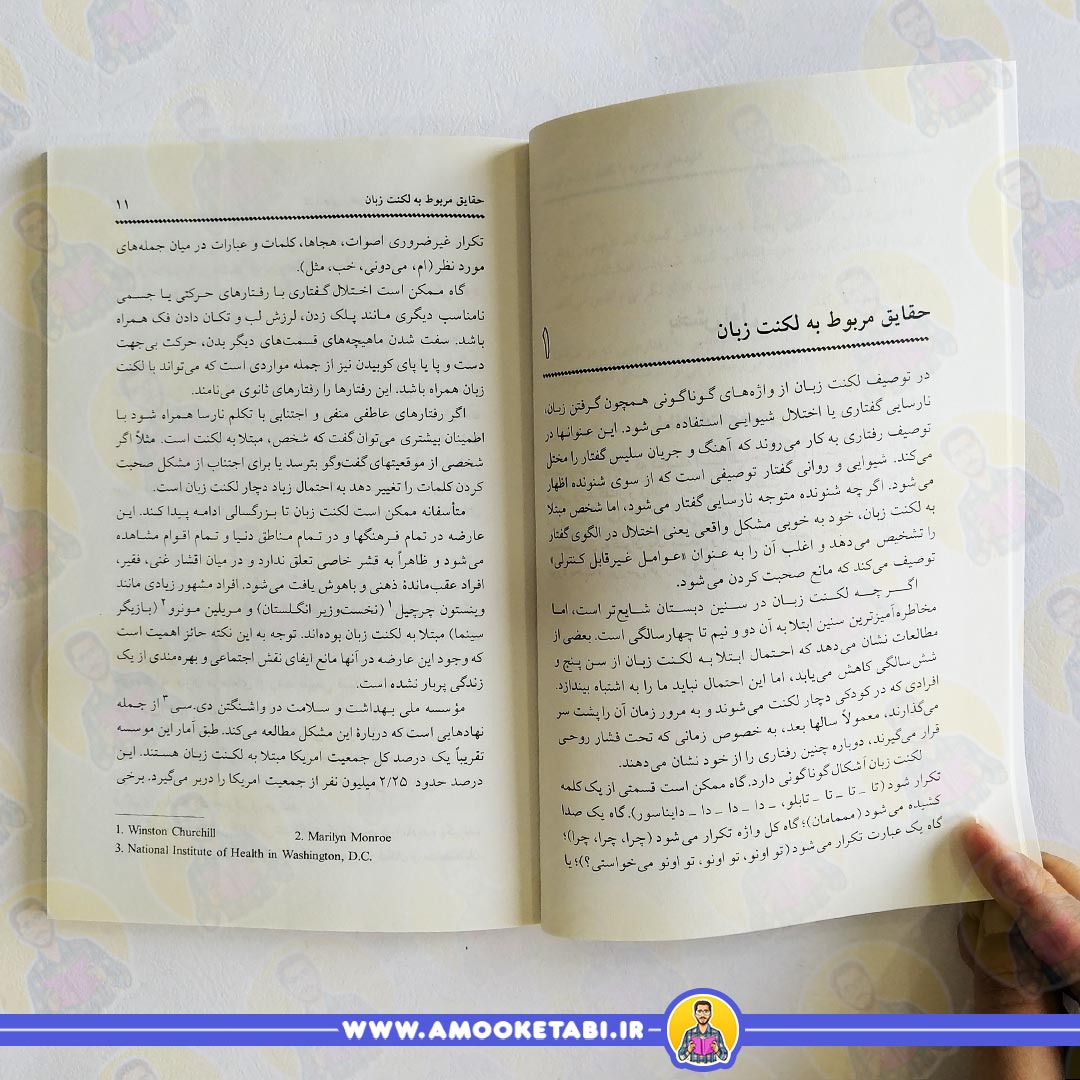 ۱
حقایق مربوط به لکنت زبان
در توصیف لکنت زبان از واژه‌های گوناگونی همچون گرفتن زبان،
نارسایی گفتاری یا اختلال شیوایی استفاده می‌شود. این عنوانها در
توصیف رفتاری به کار می‌روند که آهنگ و جریان سلیس گفتار را مختل
می‌کند. شیوایی و روانی گفتار توصیفی است که از سوی شنونده اظهار
می‌شود. اگر چه شنونده متوجه نارسایی گفتار می‌شود، اما شخص مبتلا
به لکنت زبان، خود به خوبی مشکل واقعی یعنی اختلال در الگوی گفتار
را تشخیص می‌دهد و اغلب آن را به عنوان «عوامل غیرقابل کنترلی»
توصیف می‌کند که مانع صحبت کردن می‌شود.
اگر چه لکنت زبان در سنین دبستان شایع‌تر است، اما
مخاطره‌آمیزترین سنین ابتلا به آن دو و نیم تا چهارسالگی است. بعضی از
مطالعات نشان می‌دهد که احتمال ابتلا به لکنت زبان از سن پنج و
شش سالگی کاهش می‌یابد، اما این احتمال نباید ما را به اشتباه بیندازد.
افرادی که در کودکی دچار لکنت می‌شوند و به مرور زمان آن را پشت سر
می‌گذارند، معمولاً سالها بعد، به خصوص زمانی که تحت فشار روحی
قرار می‌گیرند، دوباره چنین رفتاری را از خود نشان می‌دهند.
لکنت زبان اَشکال گوناگونی دارد. گاه ممکن است قسمتی از یک کلمه
تکرار شود (تا ـ تا ـ تا ـ تابلو، ـ دا ـ دا ـ دا ـ دایناسور). گاه یک صدا
کشیده می‌شود (مممامان)؛ گاه کل واژه تکرار می‌شود (چرا، چرا، چرا)؛
گاه یک عبارت تکرار می‌شود (تو اونو، تو اونو، تو اونو می‌خواستی؟)؛ یا
حقایق مربوط به لکنت زبان ۱۱
تکرار غیرضروری اصوات، هجاها، کلمات و عبارات در میان جمله‌های
مورد نظر (اِم، می‌دونی، خب، مثل).
گاه ممکن است اختلال گفتاری با رفتارهای حرکتی یا جسمی
نامناسب دیگری مانند پلک زدن، لرزش لب و تکان دادن فک همراه
باشد. سفت شدن ماهیچه‌های قسمت‌های دیگر بدن، حرکت بی‌جهت
دست و پا یا پای کوبیدن نیز از جمله مواردی است که می‌تواند با لکنت
زبان همراه باشد. این رفتارها را رفتارهای ثانوی می‌نامند.
اگر رفتارهای عاطفی منفی و اجتنابی با تکلم نارسا همراه شود با
اطمینان بیشتری می‌توان گفت که شخص، مبتلا به لکنت است. مثلاً اگر
شخصی از موقعیتهای گفت‌وگو بترسد یا برای اجتناب از مشکل صحبت
کردن کلمات را تغییر دهد به احتمال زیاد دچار لکنت زبان است.
متأسفانه ممکن است لکنت زبان تا بزرگسالی ادامه پیدا کند. این
عارضه در تمام فرهنگها و در تمام مناطق دنیا و تمام اقوام مشاهده
می‌شود و ظاهراً به قشر خاصی تعلق ندارد و در میان اقشار غنی، فقیر،
افراد عقب‌ماندهٔ ذهنی و باهوش یافت می‌شود. افراد مشهور زیادی مانند
وینستون چرچیل۱ (نخست‌وزیر انگلستان) و مریلین مونرو۲ (بازیگر
سینما) مبتلا به لکنت زبان بوده‌اند. توجه به این نکته حائز اهمیت است
که وجود این عارضه در آنها مانع ایفای نقش اجتماعی و بهره‌مندی از یک
زندگی پربار نشده است.
مؤسسه ملی بهداشت و سلامت در واشنگتن دی.سی۳ از جمله
نهادهایی است که دربارهٔ این مشکل مطالعه می‌کند. طبق آمار این موسسه
تقریباً یک درصد کل جمعیت امریکا مبتلا به لکنت زبان هستند. این
درصد حدود ۲/۲۵ میلیون نفر از جمعیت امریکا را دربر می‌گیرد. برخی
1. Winston Churchill 2. Marilyn Monroe
3. National Institute of Health in Washington, D.C.
WWW.AMOOKETABI.IR